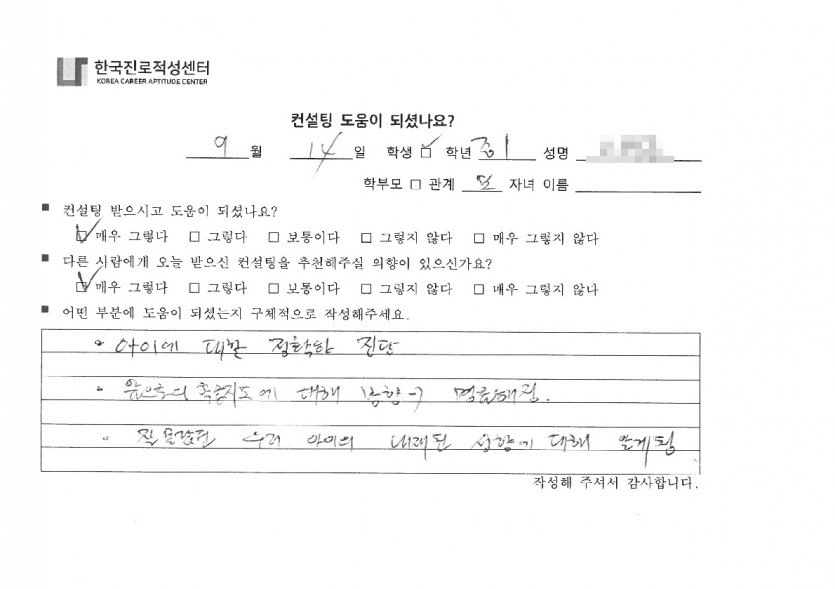 한국진로적성센터
KOREA CAREER APTITUDE CENTER
컨설팅 도움이 되셨나요?
9 월 14 일 학생 □ 학년 중1 성명
학부모 □ 관계 모 자녀 이름
■ 컨설팅 받으시고 도움이 되셨나요?
☑ 매우 그렇다 □ 그렇다 □ 보통이다 □ 그렇지 않다 □ 매우 그렇지 않다
■ 다른 사람에게 오늘 받으신 컨설팅을 추천해주실 의향이 있으신가요?
☑ 매우 그렇다 □ 그렇다 □ 보통이다 □ 그렇지 않다 □ 매우 그렇지 않다
■ 어떤 부분에 도움이 되셨는지 구체적으로 작성해주세요.
• 아이에 대한 정확한 진단
• 앞으로의 학습지도에 대해 방향이 명료해짐.
• 잘 몰랐던 우리 아이의 내재된 성향에 대해 알게됨
작성해 주셔서 감사합니다.